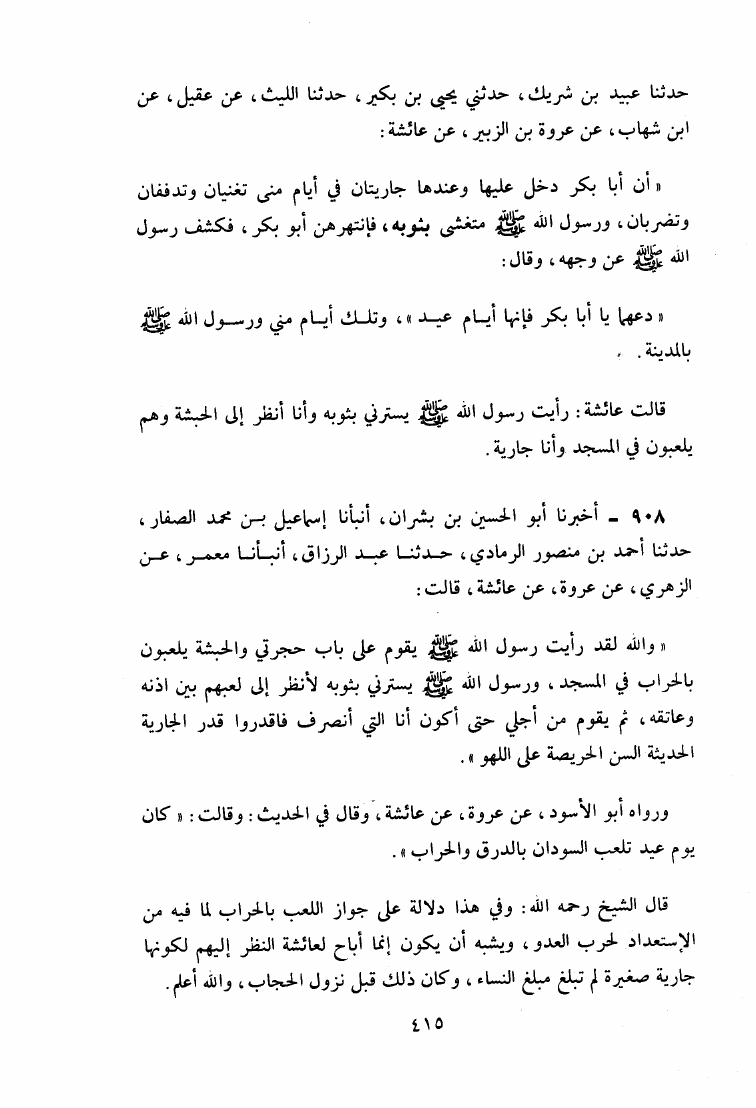 حدثنا عبيد بن شريك، حدثني يحيى بن بكير، حدثنا الليث، عن عقيل، عن
ابن شهاب، عن عروة بن الزبير، عن عائشة:
« أن أبا بكر دخل عليها وعندها جاريتان في أيام منى تغنيان وتدففان
وتضربان، ورسول الله ﷺ متغشى بثوبه، فإنتهرهن أبو بكر، فكشف رسول
الله ﷺ عن وجهه، وقال:
« دعهما يا أبا بكر فإنها أيـام عيـد »، وتلـك أيـام مني ورسـول الله ﷺ
بالمدينة.
قالت عائشة: رأيت رسول الله ﷺ يسترني بثوبه وأنا أنظر إلى الحبشة وهم
يلعبون في المسجد وأنا جارية.
٩٠٨ ـ أخبرنا أبو الحسين بن بشران، أنبأنا إسماعيل بـن محمد الصفار،
حدثنا أحمد بن منصور الرمادي، حـدثنـا عبـد الرزاق، أنبـأنـا معمـر، عـن
الزهري، عن عروة، عن عائشة، قالت:
« والله لقد رأيت رسول الله ﷺ يقوم على باب حجرتي والحبشة يلعبون
بالحراب في المسجد، ورسول الله ﷺ يسترني بثوبه لأنظر إلى لعبهم بين اذنه
وعاتقه، ثم يقوم من أجلي حتى أكون أنا التي أنصرف فاقدروا قدر الجارية
الحديثة السن الحريصة على اللهو ».
ورواه أبو الأسود، عن عروة، عن عائشة، وقال في الحديث: وقالت: « كان
يوم عيد تلعب السودان بالدرق والحراب ».
قال الشيخ رحمه الله: وفي هذا دلالة على جواز اللعب بالحراب لما فيه من
الإستعداد لحرب العدو، ويشبه أن يكون إنما أباح لعائشة النظر إليهم لكونها
جارية صغيرة لم تبلغ مبلغ النساء، وكان ذلك قبل نزول الحجاب، والله أعلم.
٤١٥